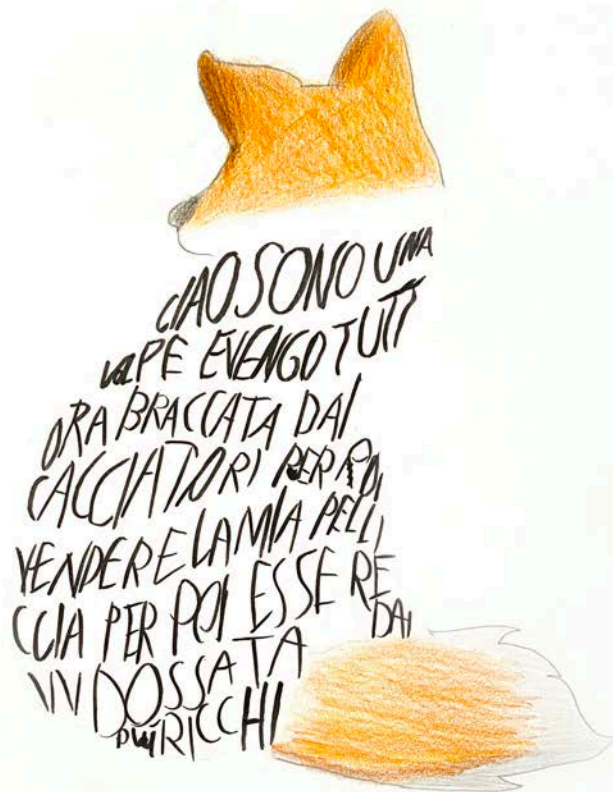 CIAO SONO UNA
VOLPE E VENGO TUTT
ORA BRACCATA DAI
CACCIATORI PER POI
VENDERE LA MIA PELLI
CCIA PER POI ESSERE
INDOSSATA DAI
PIÙ RICCHI